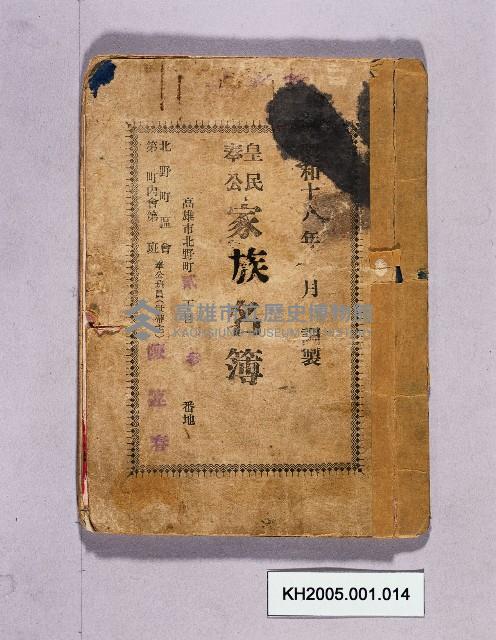 和十八年 月調製
皇民
奉公
家族名簿
高雄市北野町 貳丁目 番地
北野町區會
第 町內會第 班
奉公班員
春
高雄市立歷史博物館
KAOHSIUNG MUSEUM OF HISTORY
KH2005.001.014